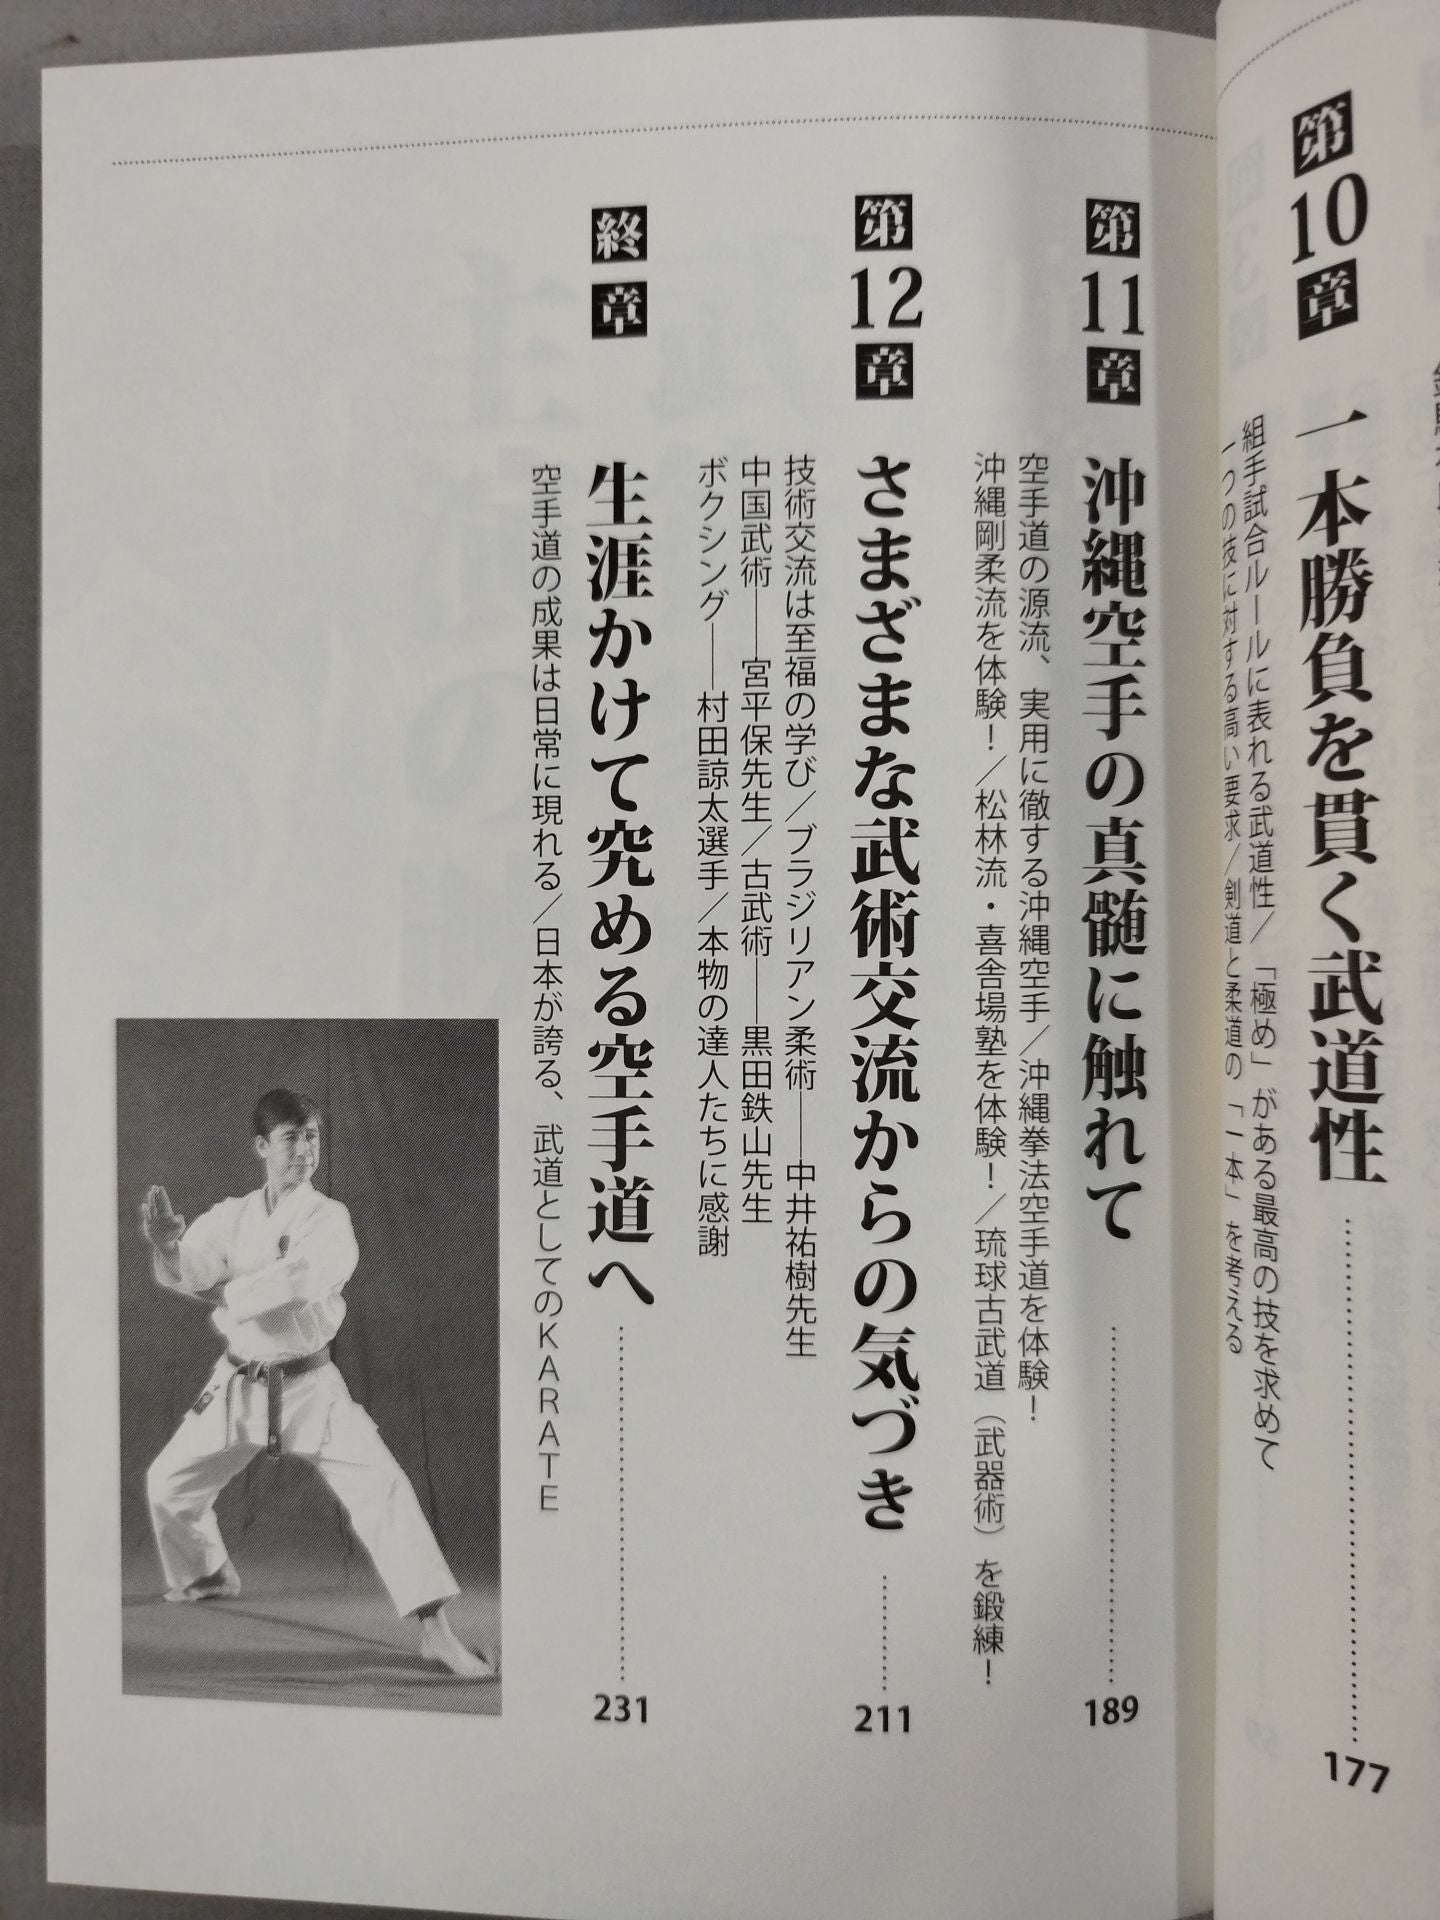 第10章
一本勝負を貫く武道性
177
組手試合ルールに表れる武道性/「極め」がある最高の技を求めて
一つの技に対する高い要求/剣道と柔道の「一本」を考える
第11章
沖縄空手の真髄に触れて
189
空手道の源流、実用に徹する沖縄空手/沖縄拳法空手道を体験!
沖縄剛柔流を体験!/松林流・喜舎場塾を体験!/琉球古武道(武器術)を鍛練!
第12章
さまざまな武術交流からの気づき
211
技術交流は至福の学び/ブラジリアン柔術――中井祐樹先生
中国武術――宮平保先生/古武術――黒田鉄山先生
ボクシング――村田諒太選手/本物の達人たちに感謝
終章
生涯かけて究める空手道へ
231
空手道の成果は日常に現れる/日本が誇る、武道としてのKARATE